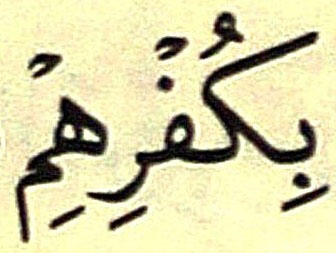 بِكُفْرِهِمْ